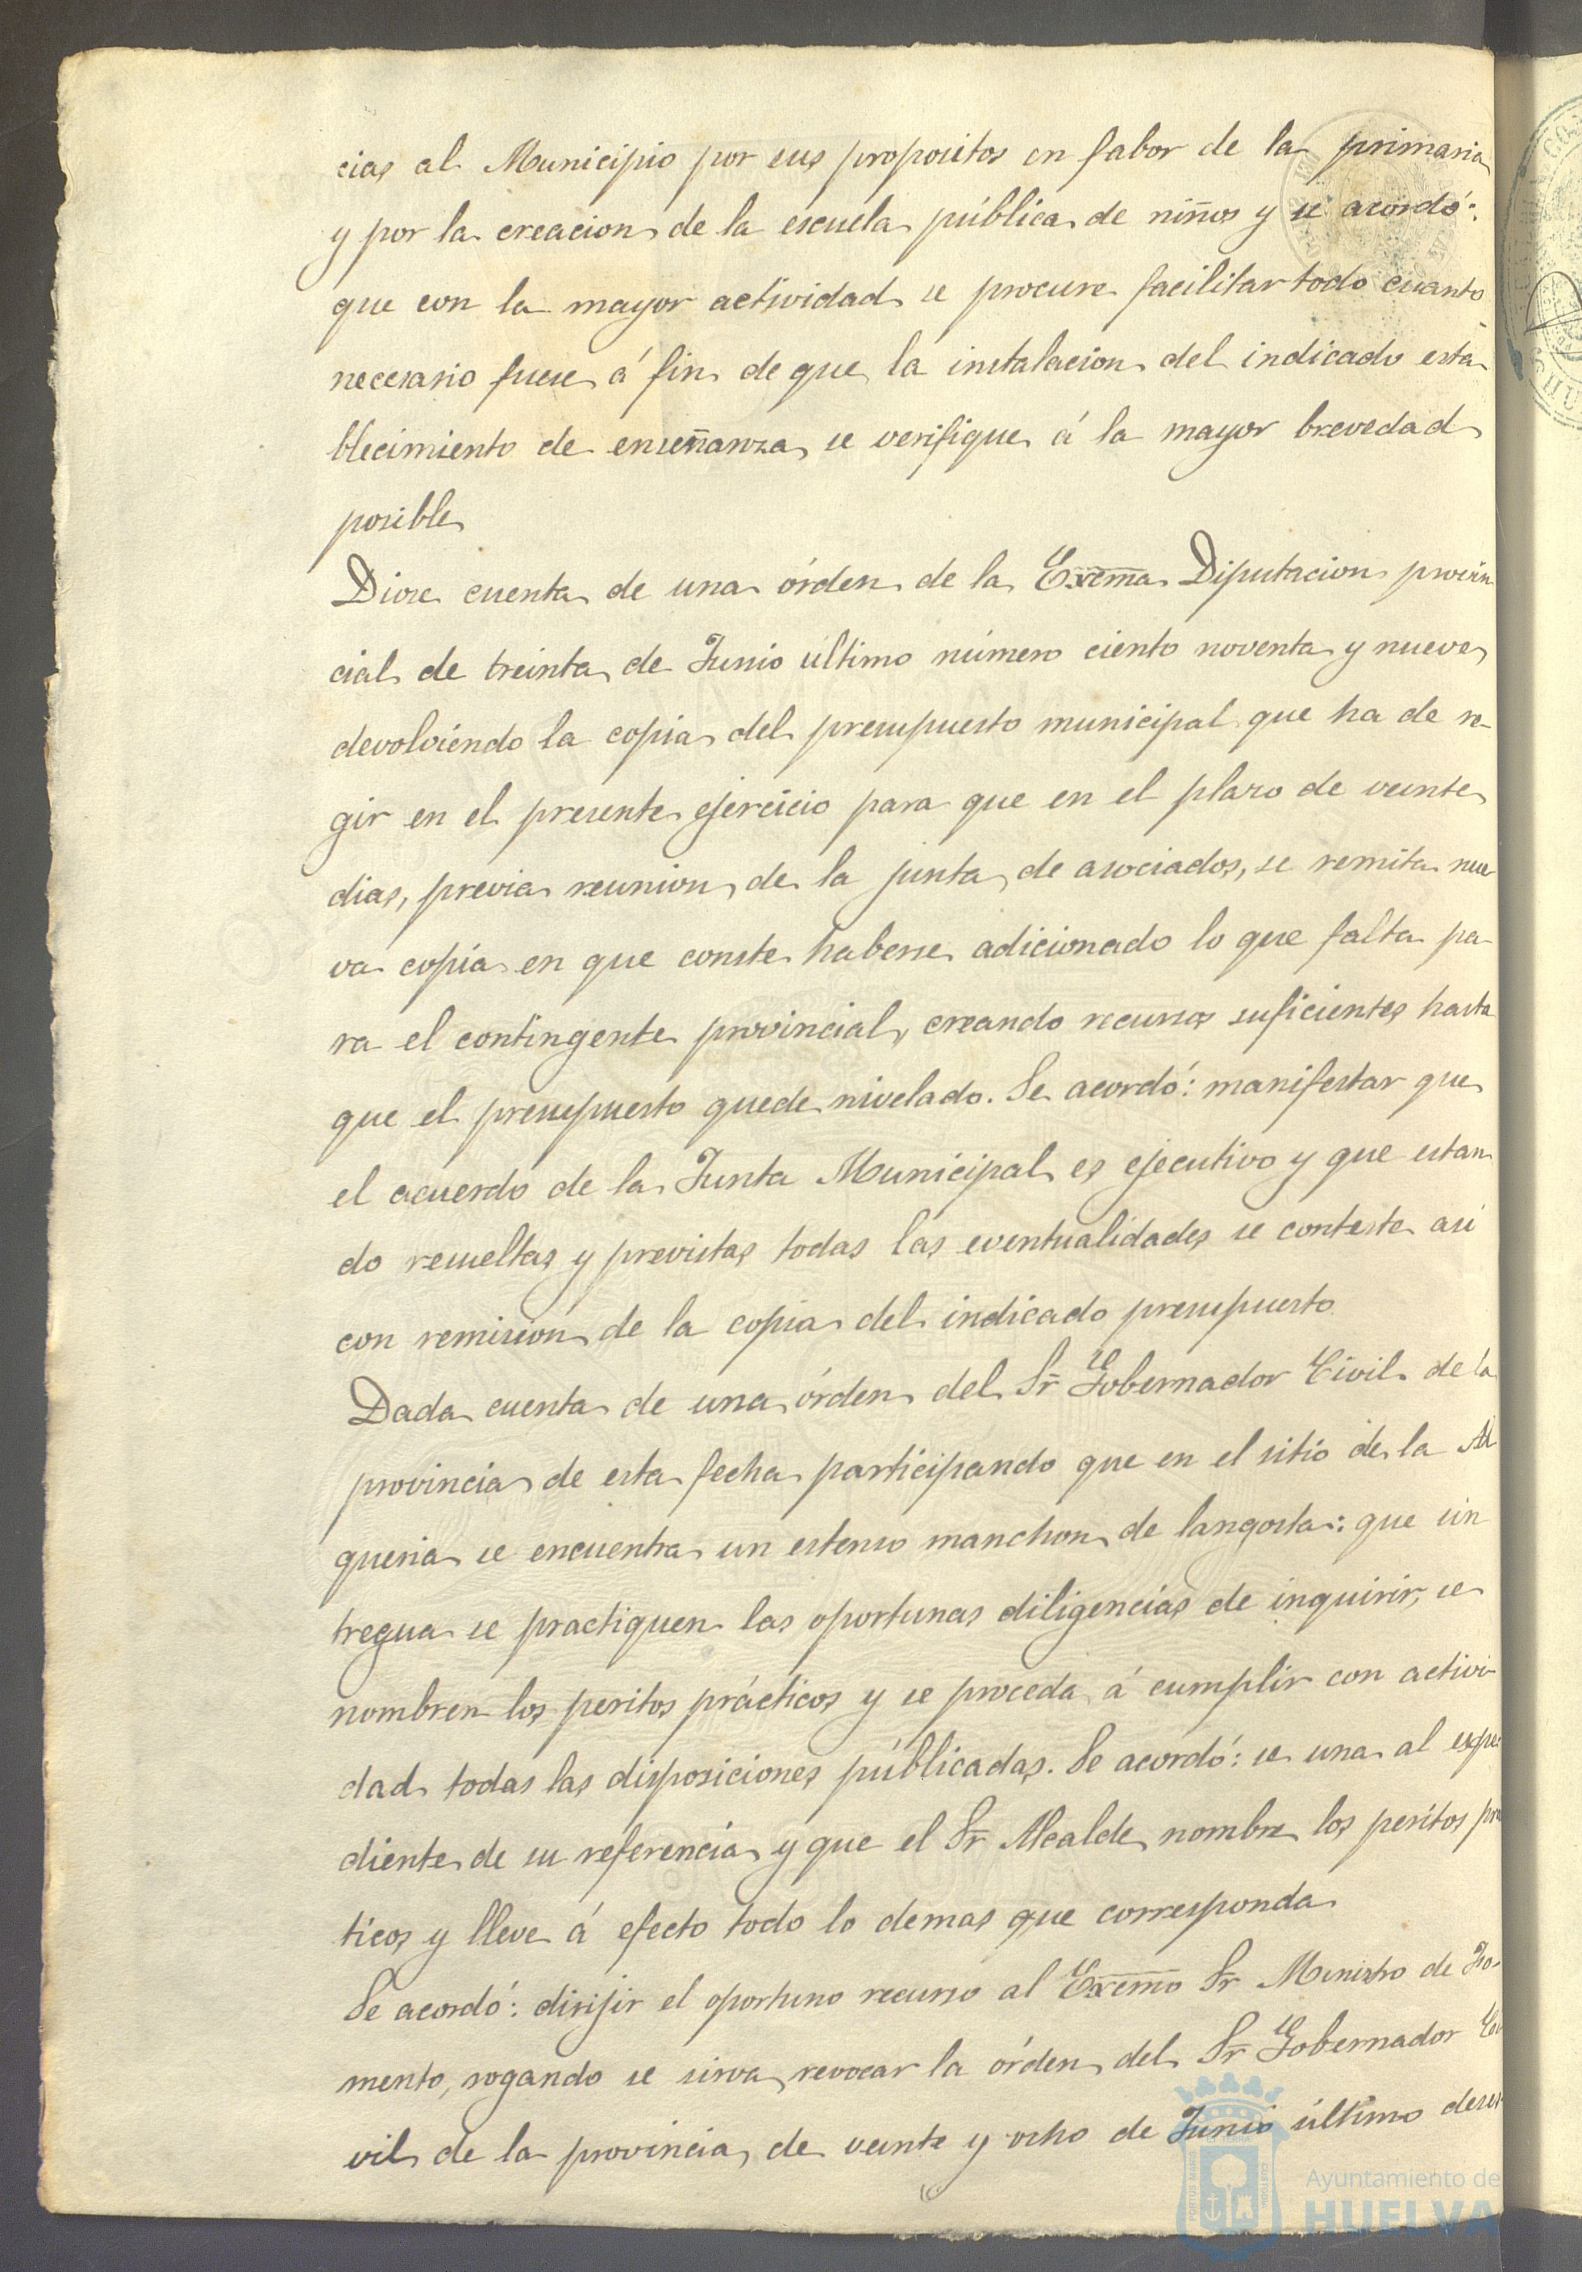 cias al Municipio por sus propositos en fabor de la primaria
y por la creacion de la escuela pública de niños y se acordó:
que con la mayor actividad se procure facilitar todo cuanto
necesario fuese á fin de que la instalacion del indicado esta-
blecimiento de enseñanza se verifique á la mayor brevedad
posible
Diose cuenta de una órden de la Exema Diputacion provin
cial de treinta de Junio último número ciento noventa y nueve
devolviendo la copia del presupuesto municipal que ha de re-
gir en el presente ejercicio para que en el plazo de veinte
dias, previa reunion de la junta de asociados, se remita nue
va copia en que conste haberse adicionado lo que falta pa-
ra el contingente provincial, creando recursos suficientes hasta
que el presupuesto quede nivelado. Se acordó: manifestar que
el acuerdo de la Junta Municipal es ejecutivo y que estan
do resueltas y previstas todas las eventualidades se conteste asi
con remision de la copia del indicado presupuesto
Dada cuenta de una órden del Sr Gobernador Civil de la
provincia de esta fecha participando que en el sitio de la Al
queria se encuentra un estenso manchon de langosta: que sin
tregua se practiquen las oportunas diligencias de inquirir, se
nombren los peritos prácticos y se proceda á cumplir con activi-
dad todas las disposiciones públicadas. Se acordó: se una al espe
diente de su referencia y que el Sr Alcalde nombre los peritos prac
ticos y lleve á efecto todo lo demas que corresponda
Se acordó: dirijir el oportuno recurso al Exemo Sr Ministro de Fo-
mento, rogando se sirva revocar la órden del Sr Gobernador Ci
vil de la provincia de veinte y ocho de Junio último deses
Ayuntamiento de
HUELVA